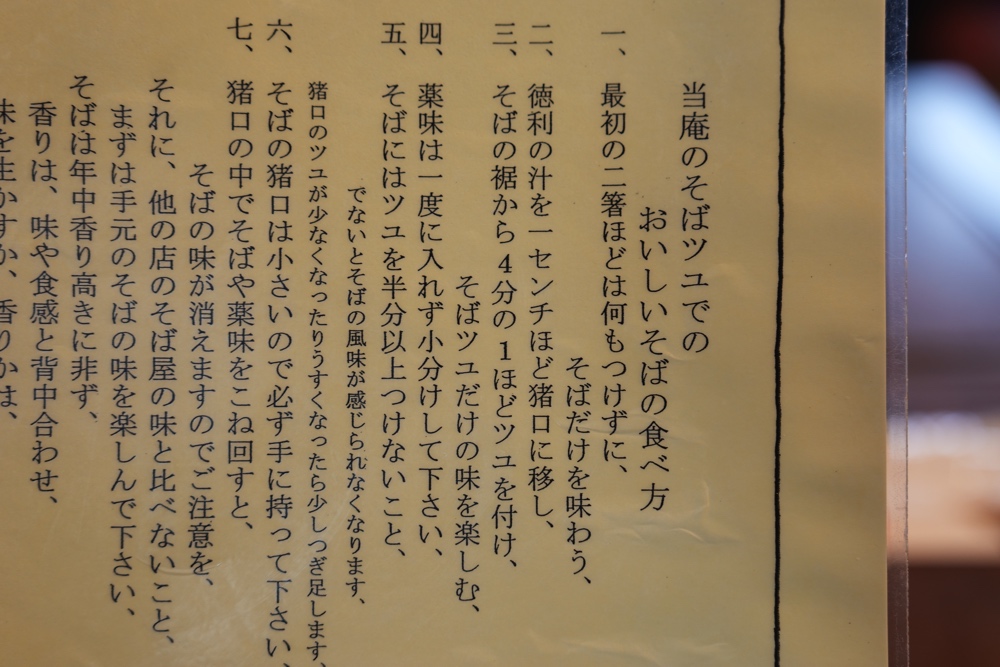 当庵のそばツユでの
おいしいそばの食べ方
一、最初の二箸ほどは何もつけずに、
そばだけを味わう、
二、徳利の汁を一センチほど猪口に移し、
三、そばの裾から4分の1ほどツユを付け、
そばツユだけの味を楽しむ、
四、薬味は一度に入れず小分けして下さい、
五、そばにはツユを半分以上つけないこと、
でないとそばの風味が感じられなくなります、
猪口のツユが少なくなったりうすくなったら少しつぎ足します、
六、そばの猪口は小さいので必ず手に持って下さい、
七、猪口の中でそばや薬味をこね回すと、
そばの味が消えますのでご注意を、
それに、他の店のそば屋の味と比べないこと、
まずは手元のそばの味を楽しんで下さい、
そばは年中香り高きに非ず、
香りは、味や食感と背中合わせ、
味を生かすか、香りかは、